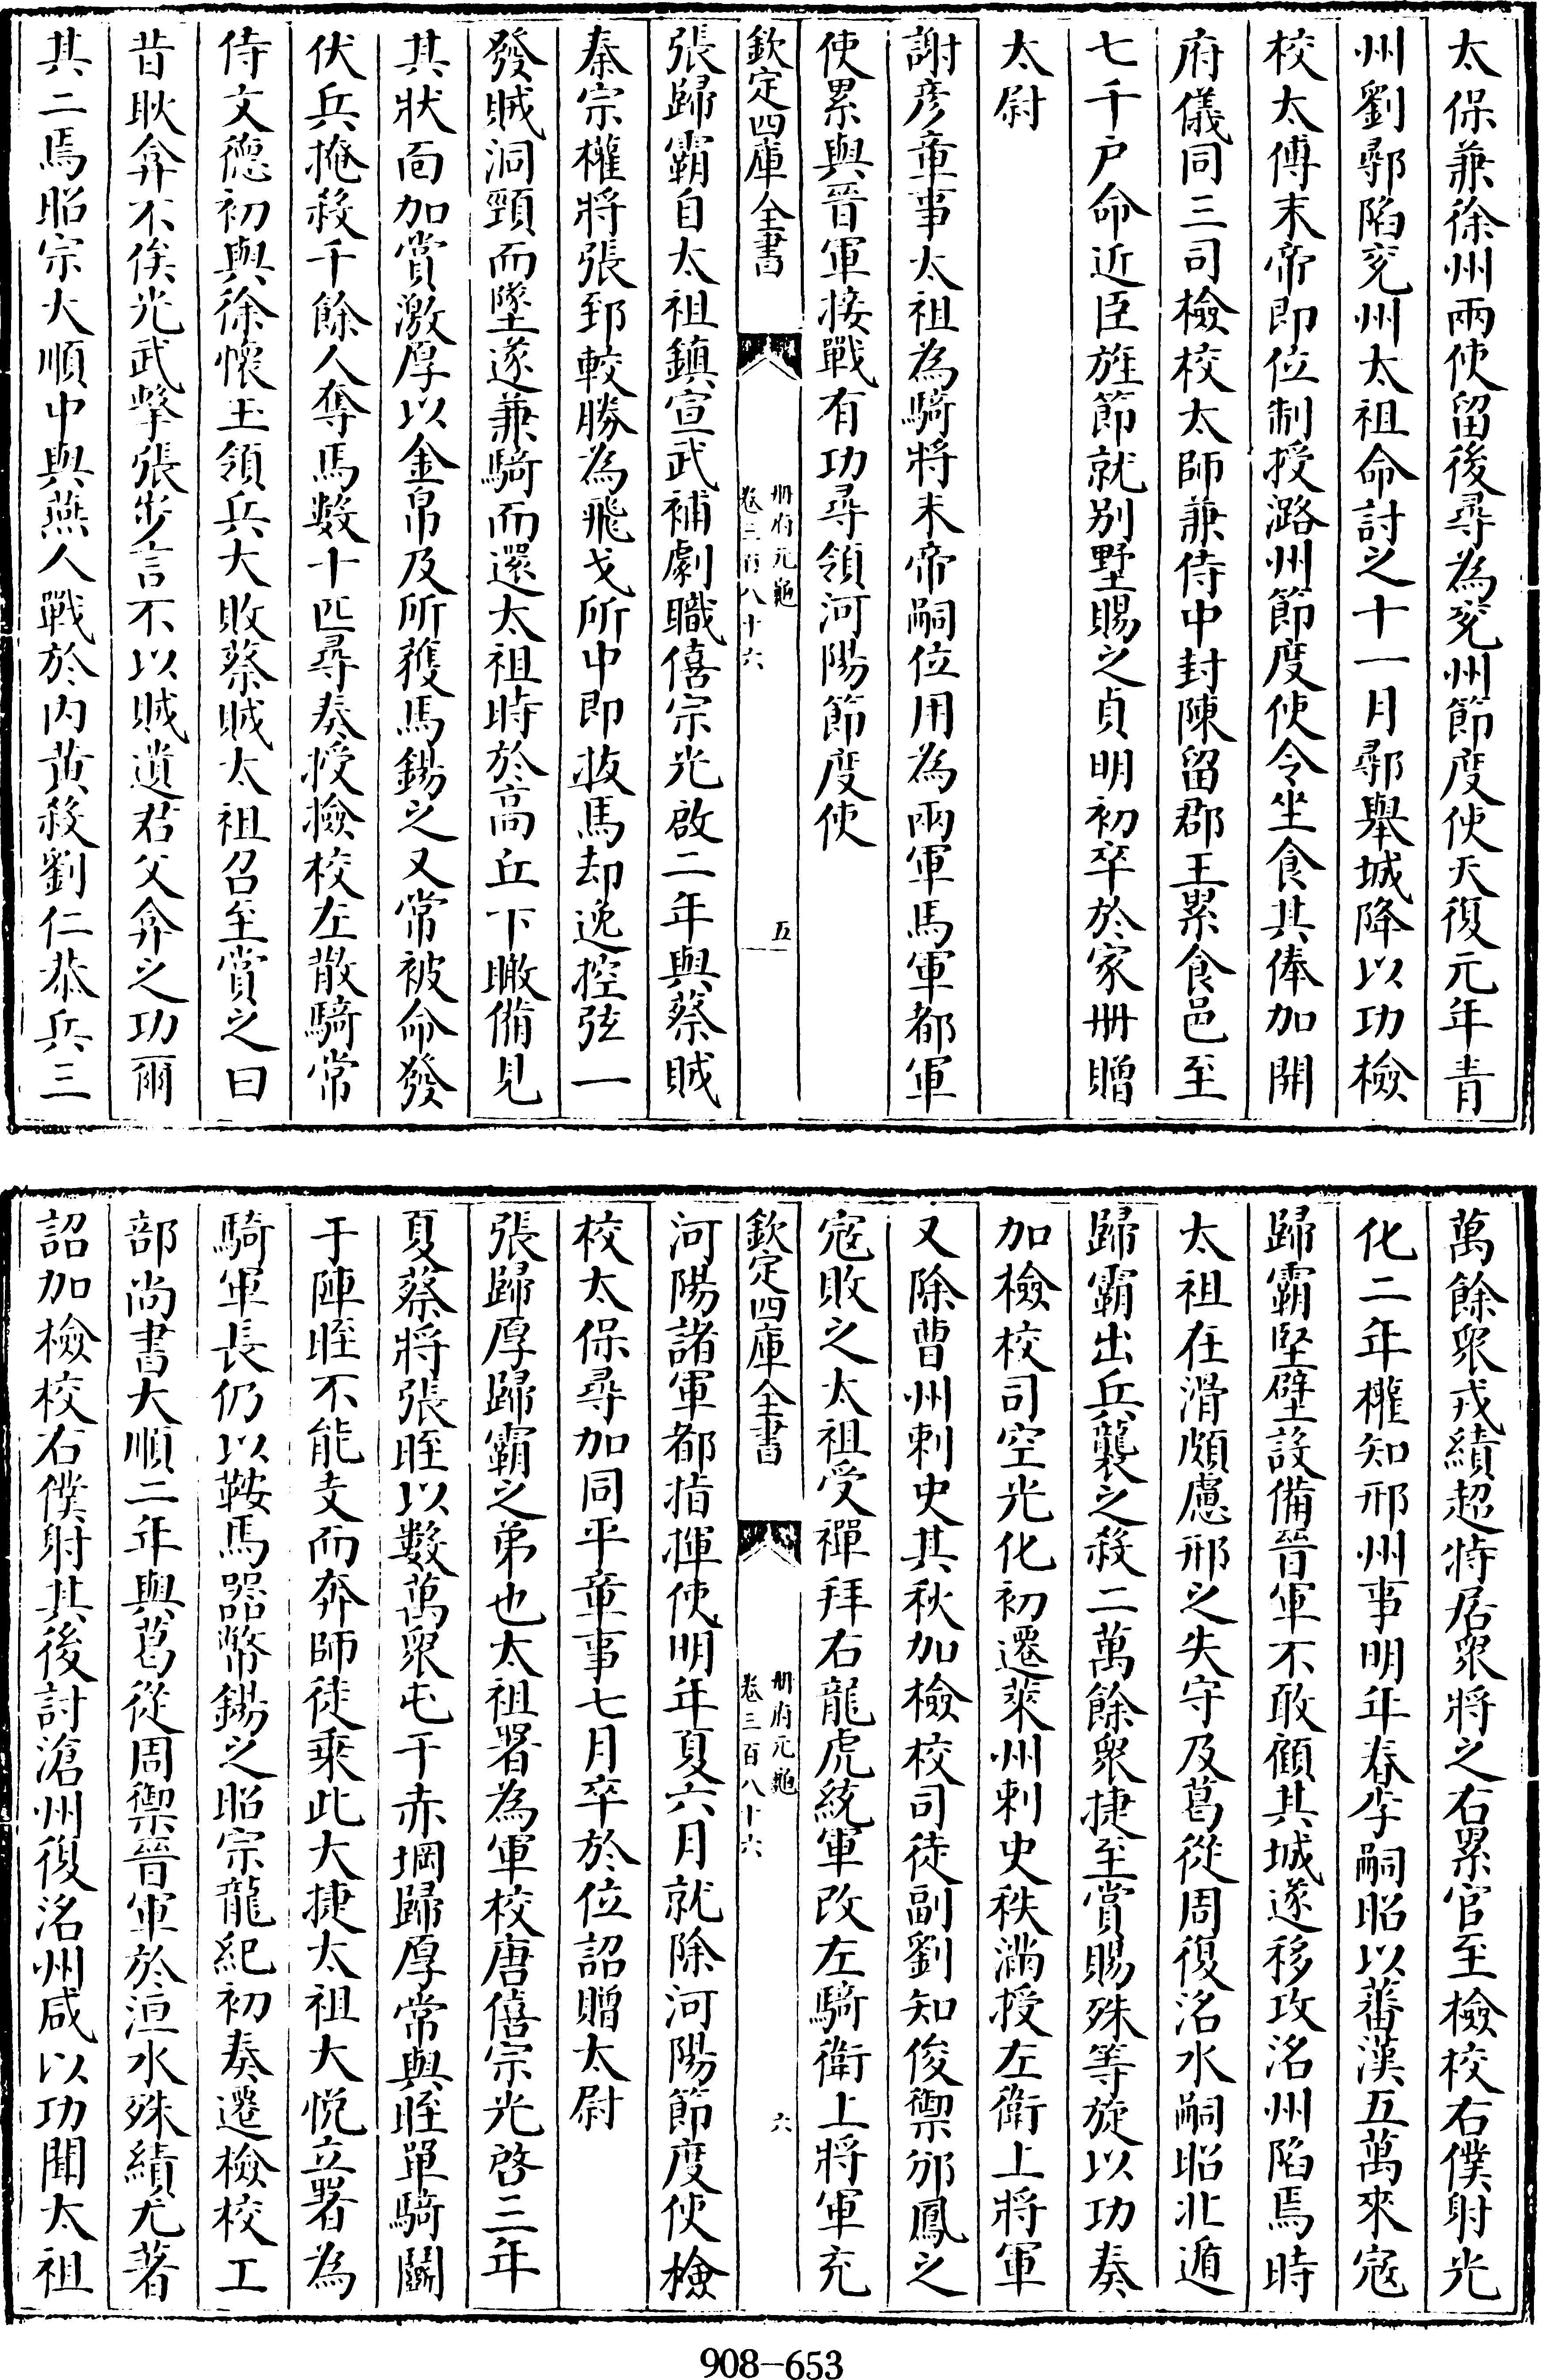 太保兼徐州兩使留後尋為兖州節度使天復元年青
州劉鄩陷兖州太祖命討之十一月鄩舉城降以功檢
校太傅末帝即位制授潞州節度使令坐食其俸加開
府儀同三司檢校太師兼侍中封陳留郡王累食邑至
七千户命近臣旌節就别墅賜之貞明初卒於家冊贈
太尉
謝彦章事太祖為騎將末帝嗣位用為兩軍馬軍都軍
使累與晉軍接戰有功尋領河陽節度使
欽定四庫全書
冊府元龜
卷三百八十六
五
張歸霸自太祖鎮宣武補劇職僖宗光啟二年與蔡賊
秦宗權將張郅較勝為飛戈所中即拔馬却逸控弦一
發賊洞頸而墜遂兼騎而還太祖時於高丘下瞰備見
其狀面加賞激厚以金帛及所獲馬錫之又常被命發
伏兵掩殺千餘人奪馬數十匹尋奏授檢校左散騎常
侍文德初與徐懷玉領兵大敗蔡賊太祖召至賞之曰
昔耿弇不俟光武擊張步言不以賊遺君父弇之功爾
其二焉昭宗大順中與燕人戰於内黄殺劉仁恭兵三
萬餘衆戎績超特居衆將之右累官至檢校右僕射光
化二年權知邢州事明年春李嗣昭以蕃漢五萬來寇
歸霸堅壁設備晉軍不敢顧其城遂移攻洺州陷焉時
太祖在滑頗慮邢之失守及葛從周復洺水嗣昭北遁
歸霸出兵襲之殺二萬餘衆捷至賞賜殊等旋以功奏
加檢校司空光化初遷萊州刺史秩滿授左衛上將軍
又除曹州刺史其秋加檢校司徒副劉知俊禦邠鳳之
寇敗之太祖受禪拜右龍虎統軍改左騎衛上將軍充
欽定四庫全書
冊府元龜
卷三百八十六
六
河陽諸軍都指揮使明年夏六月就除河陽節度使檢
校太保尋加同平章事七月卒於位詔贈太尉
張歸厚歸霸之弟也太祖署為軍校唐僖宗光啓三年
夏蔡將張晊以數萬衆屯于赤堈歸厚常與晊單騎鬭
于陣晊不能支而奔師徒乘此大捷太祖大悦立署為
騎軍長仍以鞍馬器幣錫之昭宗龍紀初奏遷檢校工
部尚書大順二年與葛從周禦晉軍於洹水殊績尤著
詔加檢校右僕射其後討滄州復洺州咸以功聞太祖
908-653